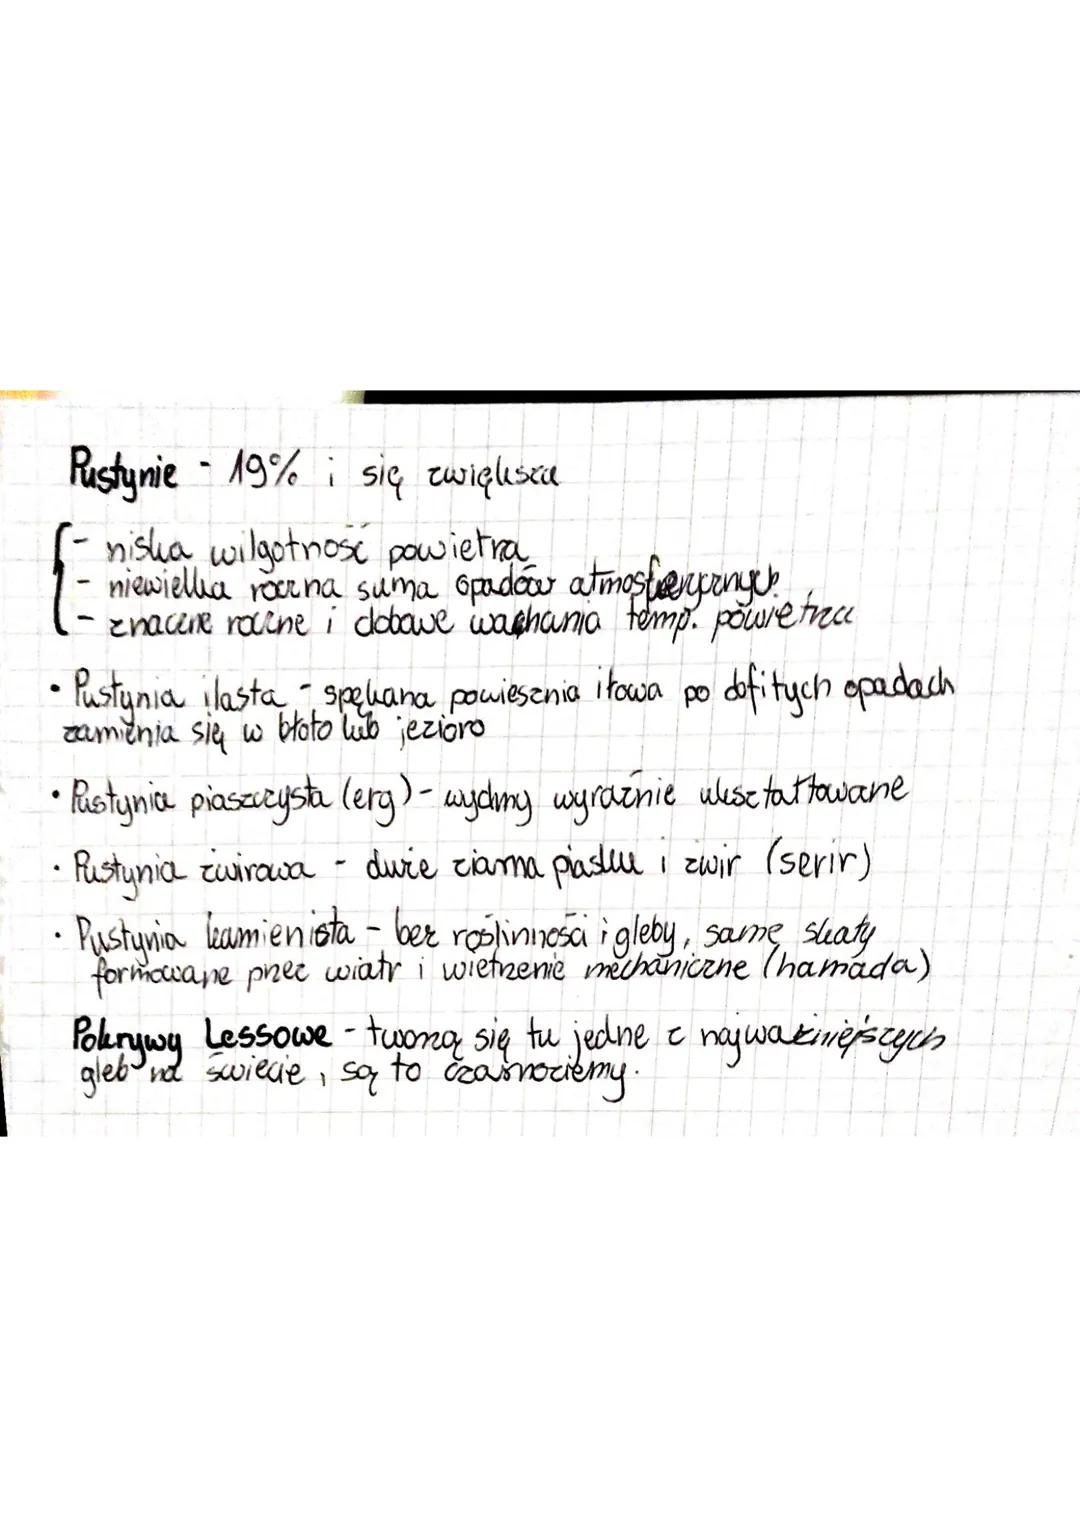 Pustynie - 19% i się zwiększa
- niska wilgotność powietrza
- niewielka roczna suma opadów atmosferycznych
- znaczne roczne i dobowe wachania temp. powietrza
• Pustynia ilasta - spękana powiesznia iłowa po dofitych opadach
zamienia się w błoto lub jezioro
• Pustynia piaszczysta (erg) - wydmy wyraźnie ukształtowane
• Pustynia żwirowa - duże ziarna piasku i żwir (serir)
• Pustynia kamienista - bez roślinności i gleby, same skały
formowane przez wiatr i wietrzenie mechaniczne (hamada)
Pokrywy Lessowe - tworzą się tu jedne z najważniejszych
gleb na świecie, są to czarnoziemy.